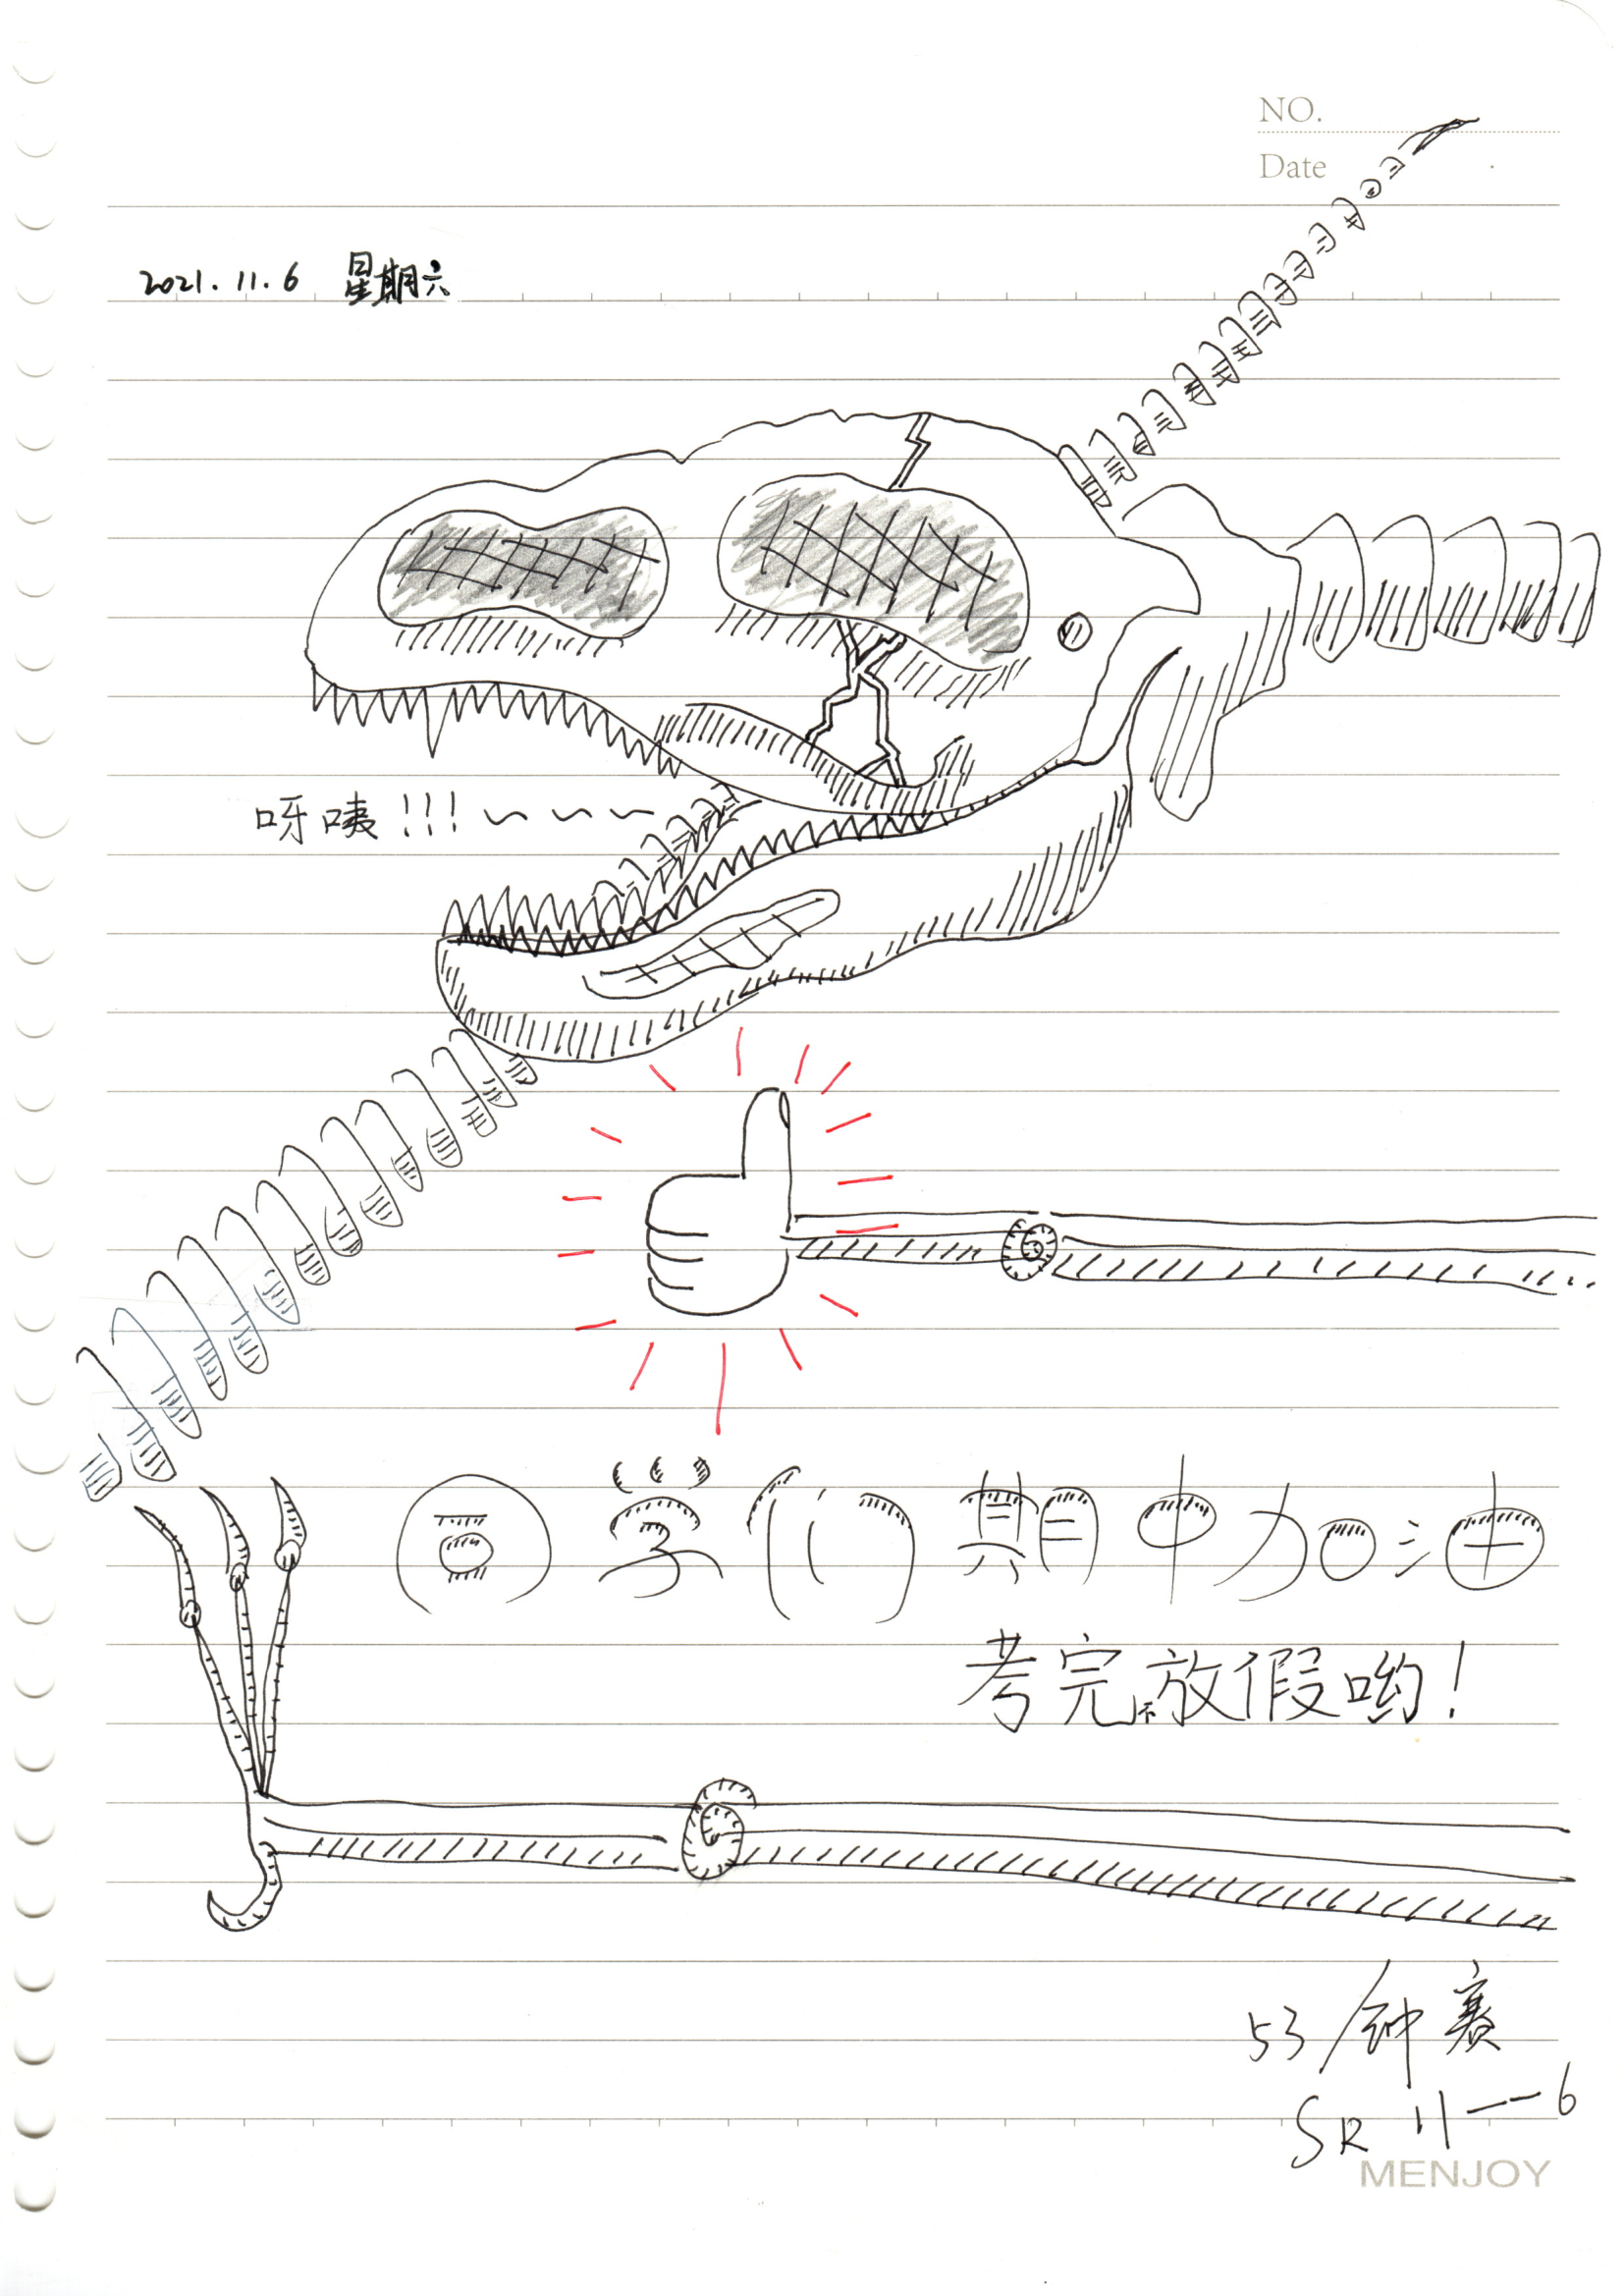 NO.
Date
2021.11.6 星期六
呀咦!!!~~~
同学们期中加油
考完不放假哟!
53 钟赛
SR 11—6
MENJOY